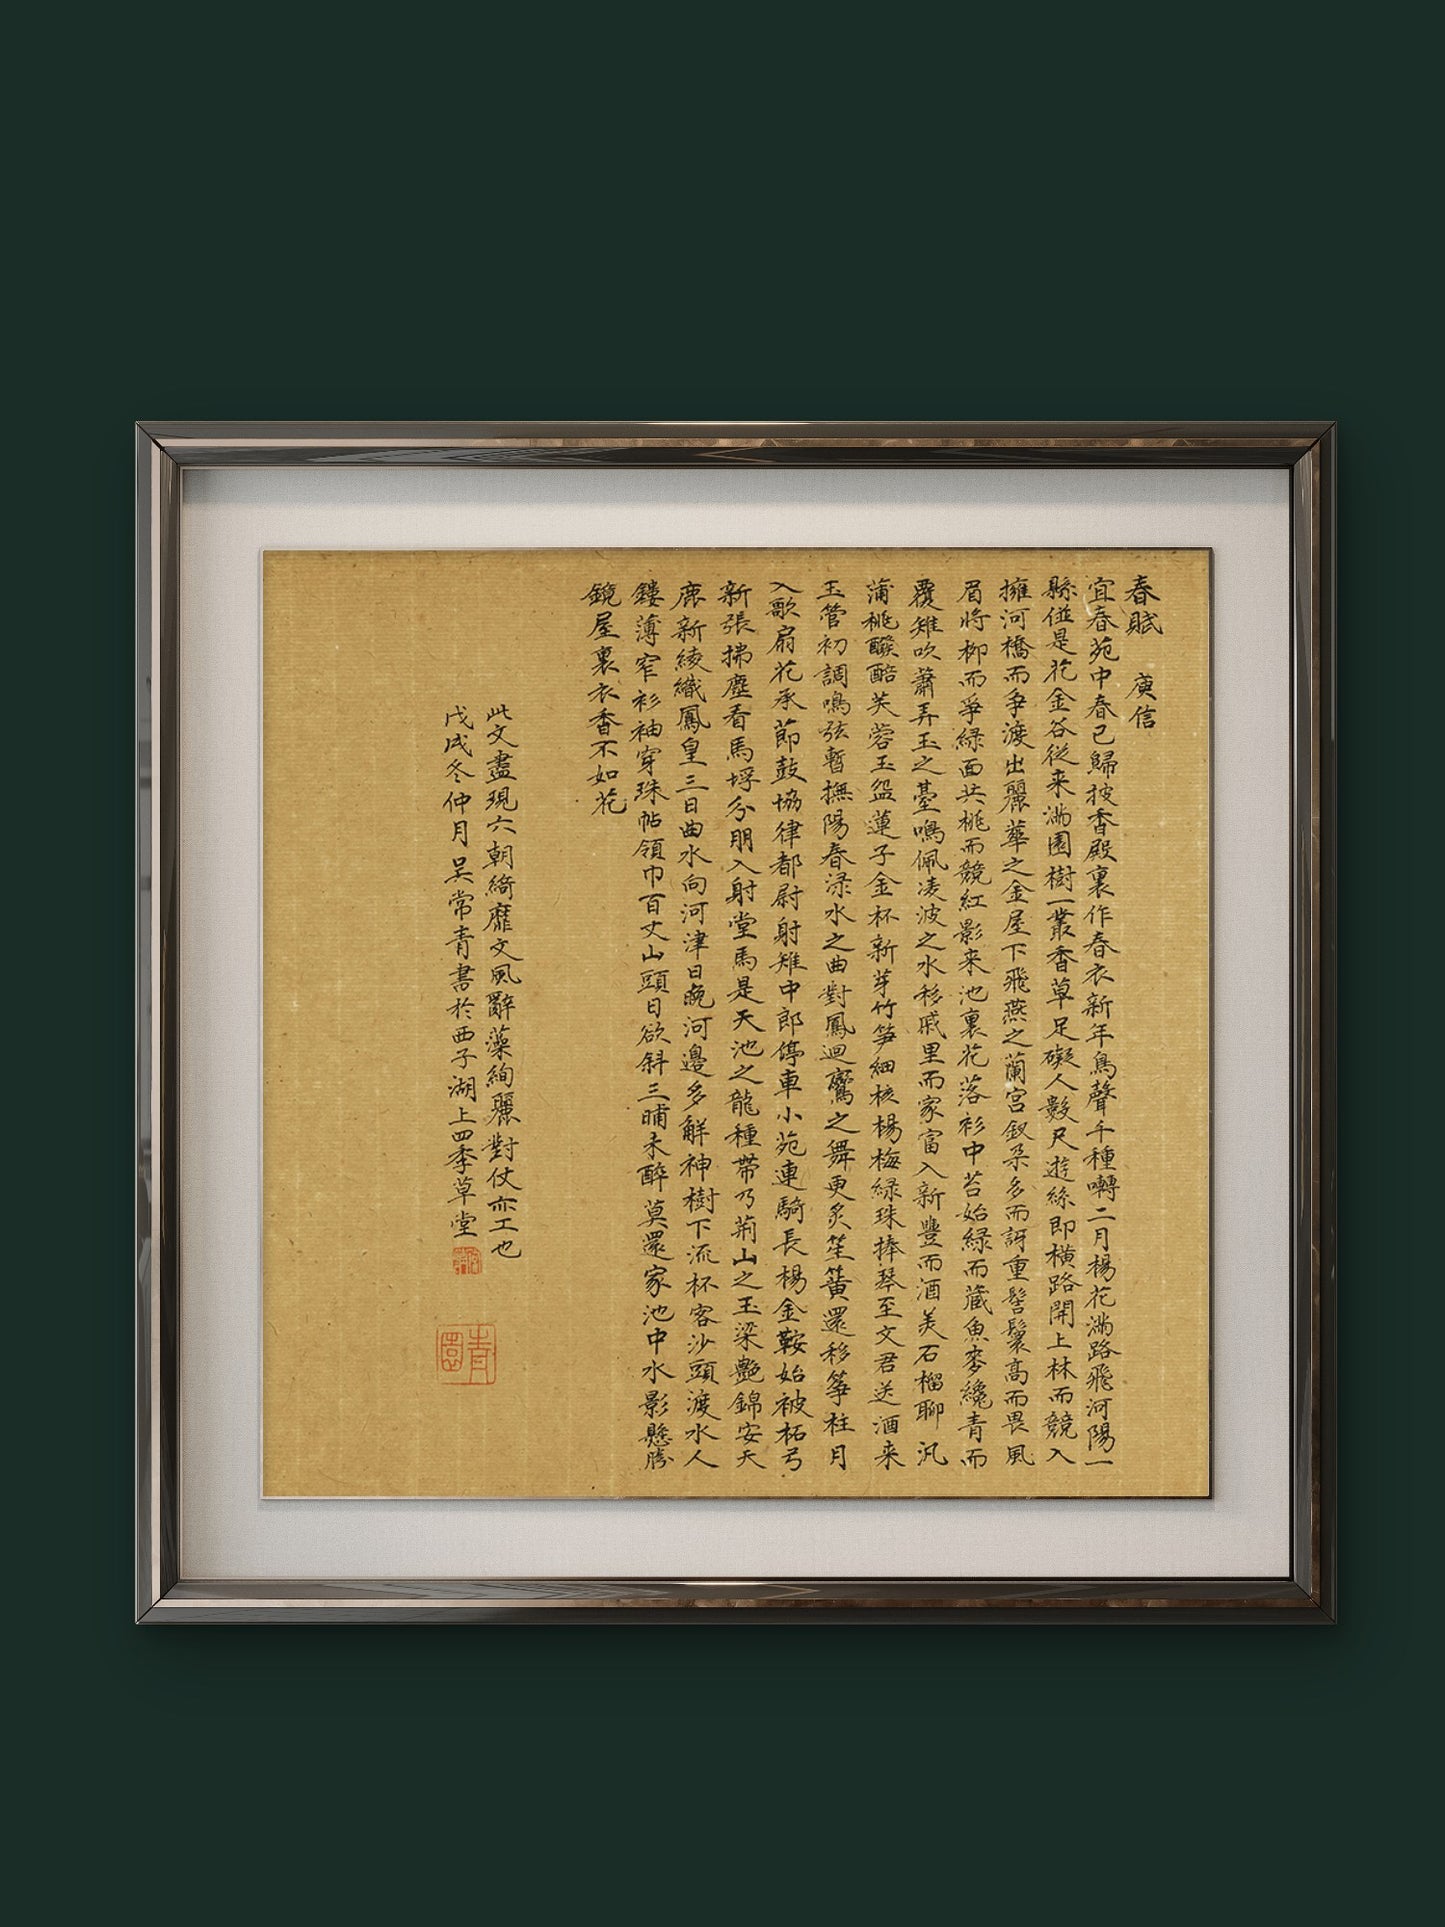 春賦　庾信
宜春苑中春已歸披香殿裏作春衣新年鳥聲千種囀二月楊花滿路飛河陽一
縣併是花金谷從来滿園樹一叢香草足礙人數尺遊絲即橫路開上林而競入
擁河橋而争渡出麗華之金屋下飛燕之蘭宮釵朶多而訝重髻鬟高而畏風
眉將柳而爭緑面共桃而競紅影来池裏花落衫中苔始緑而藏魚麥纔青而
覆雉吹簫弄玉之臺鳴佩凌波之水移戚里而家富入新豐而酒美石榴聊汎
蒲桃醱醅芙蓉玉盌蓮子金杯新芽竹笋細核楊梅緑珠捧琴至文君送酒来
玉管初調鳴弦暫撫陽春渌水之曲對鳳迴鸞之舞更炙笙簧還移筝柱月
入歌扇花承節鼓協律都尉射雉中郎停車小苑連騎長楊金鞍始被柘弓
新張拂塵看馬埒分朋入射堂馬是天池之龍種帶乃荊山之玉梁艷錦安天
鹿新綾織鳳皇三日曲水向河津日晚河邊多解神樹下流杯客沙頭渡水人
鏤薄窄衫袖穿珠帖領巾百丈山頭日欲斜三晡未醉莫還家池中水影懸勝
鏡屋裏衣香不如花
此文盡現六朝綺靡文風辭藻絢麗對仗亦工也
戊戌冬仲月吴常青書於西子湖上四季草堂
青園